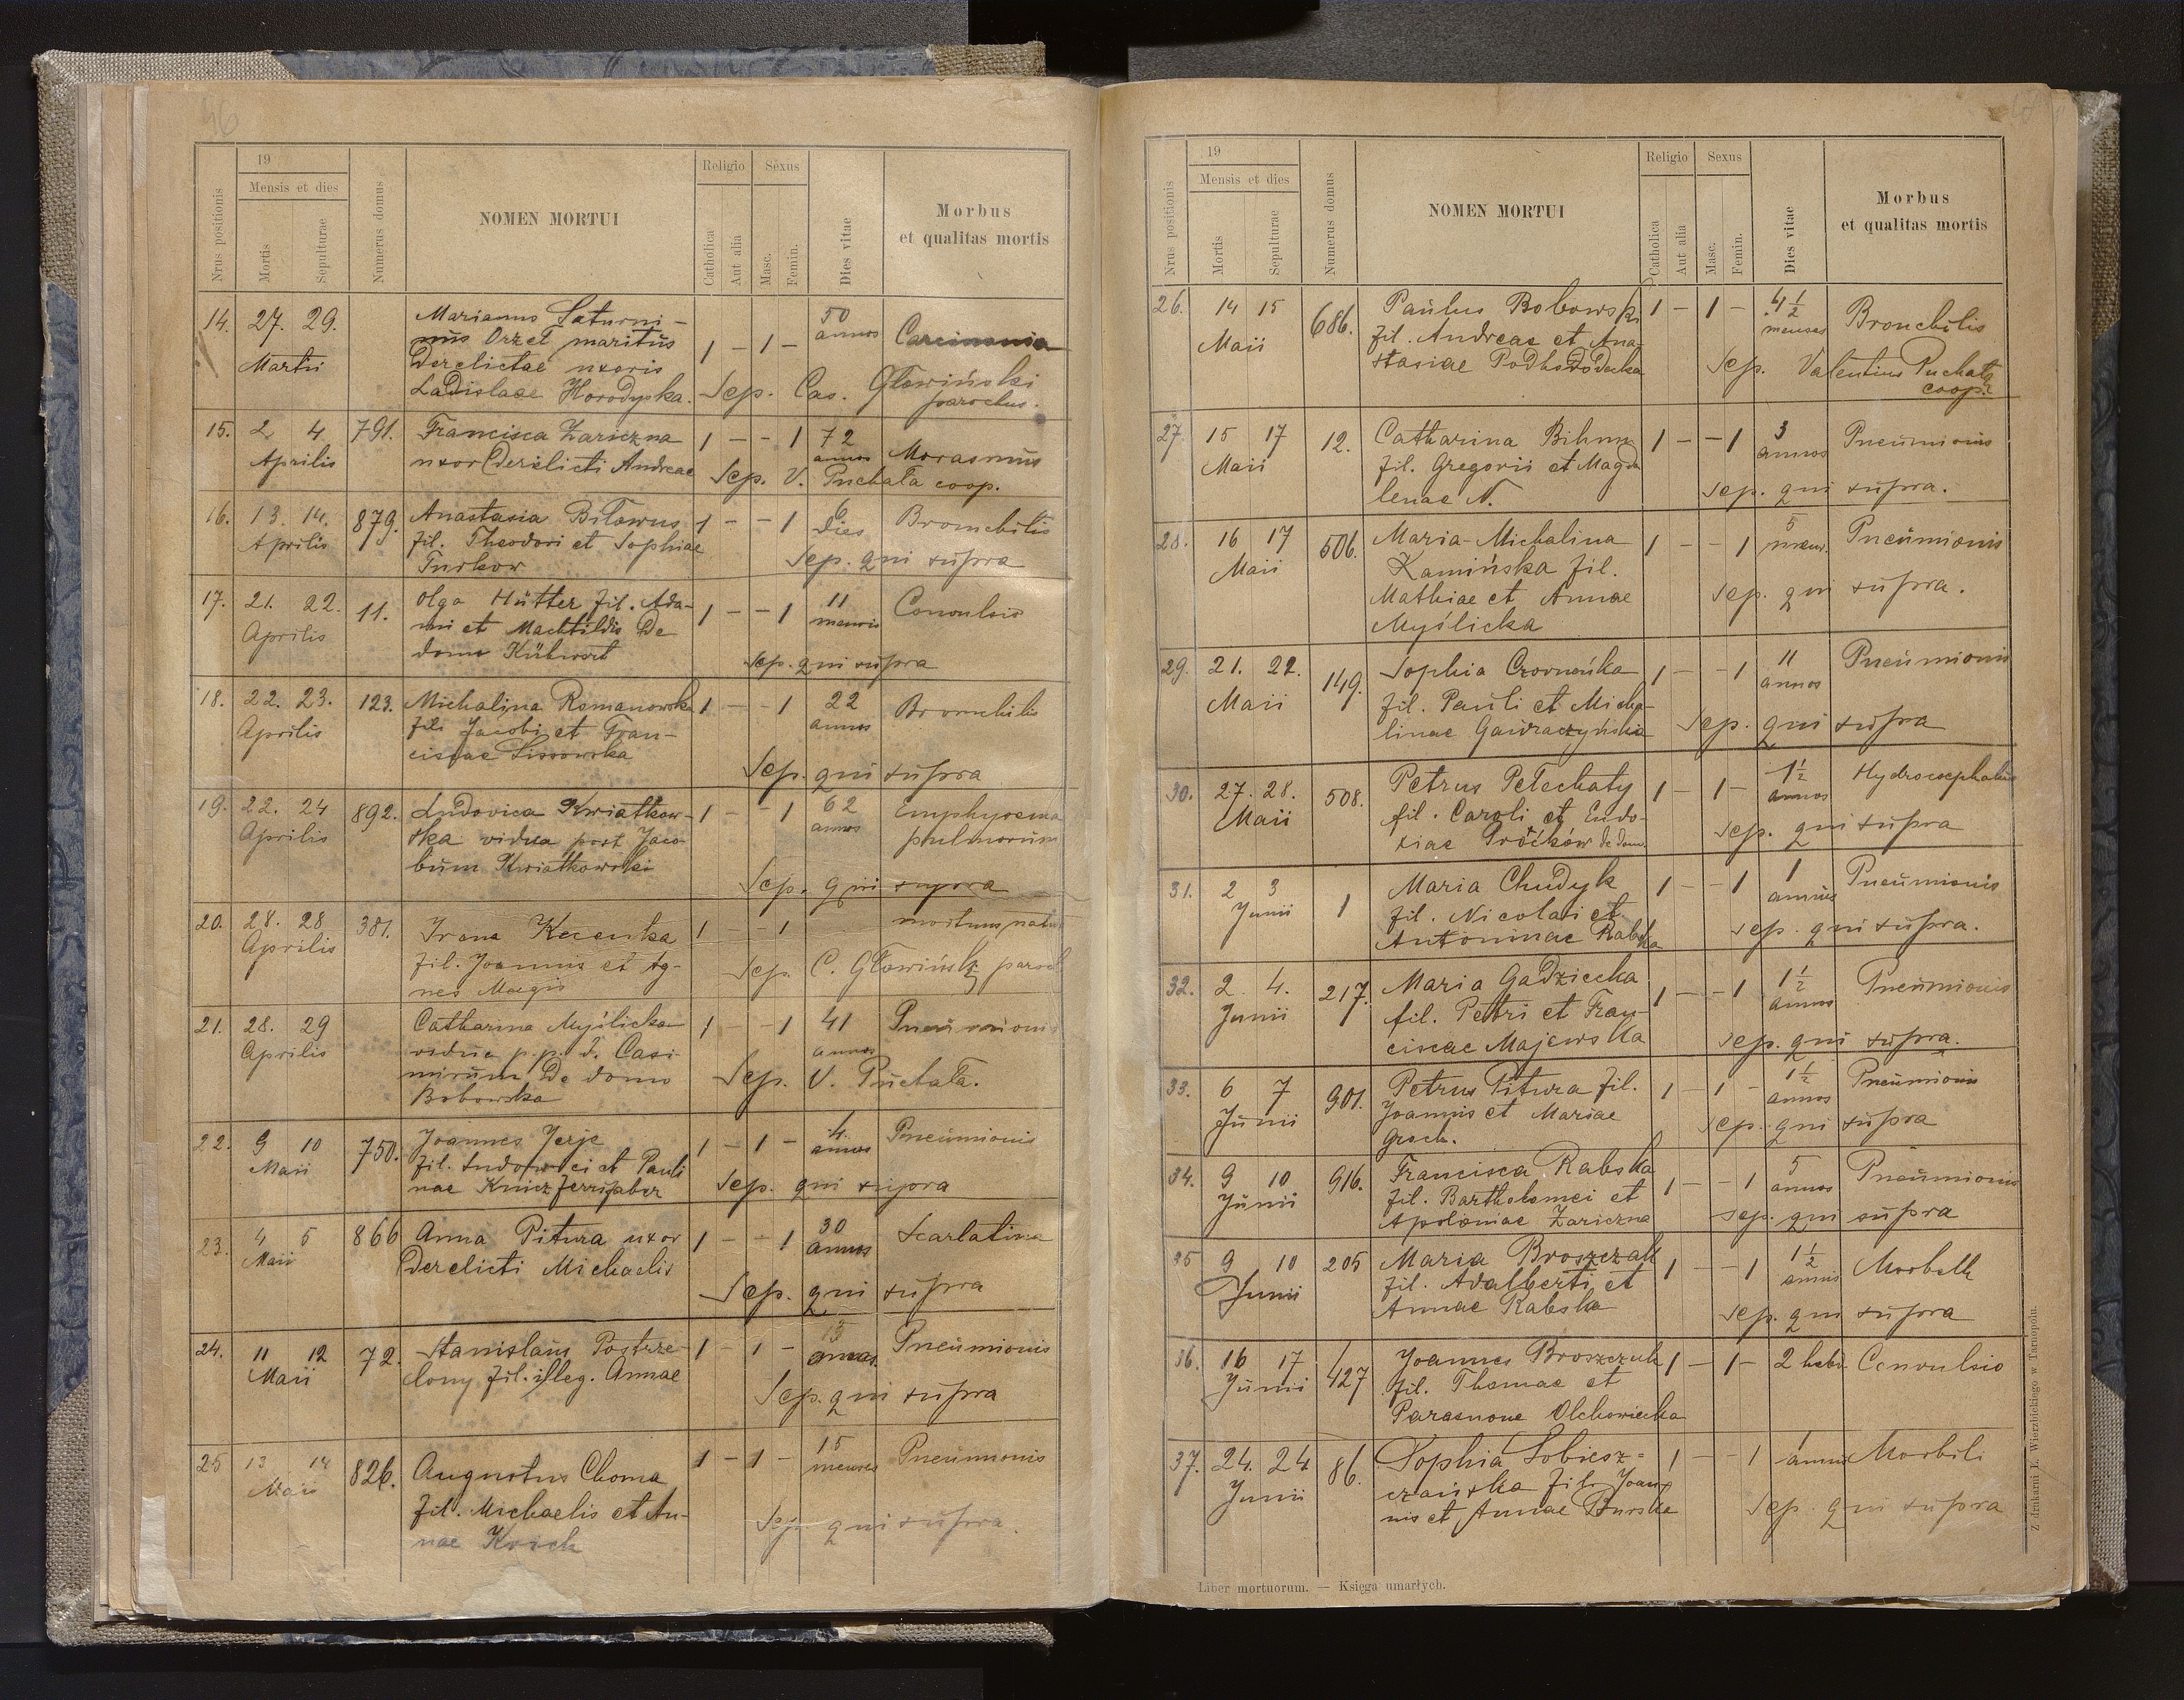 46
19
Mensis et dies
Religio
Sexus
Nrus positionis
Mortis
Sepulturae
Numerus domus
NOMEN MORTUI
Catholica
Aut alia
Masc.
Femin.
Dies vitae
Morbus
et qualitas mortis
14. 27. 29. Marianus Saturni- 50
nus Orzet maritus 1 - 1 - annos Carcinonia
Martii derelictae uxoris
Ladislaae Horodyska. Sep. Cas. Głowiński
parochus.
15. 2 4 791. Francisca Zariczna 1 - - 1 72
Aprilis uxor derelicti Andreae annos Marasmus
Sep. V. Puchała coop.
16. 13. 14. 879. Anastasia Biłowus 1 - - 1 6 Bronchitis
Aprilis fil. Theodori et Sophiae dies
Turkow Sep. qui supra
17. 21. 22. 11. Olga Hütter fil. Ada- 1 - - 1 11 Convulsio
Aprilis mi et Machtildis de mensis
domo Kühwort
Sep. qui supra
18. 22. 23. 123. Michalina Romanowska 1 - - 1 22 Bronchitis
Aprilis fil. Jacobi et Fran- annos
ciscae Lissowska
Sep. qui supra
19. 22. 24 892. Ludovica Kwiatkow- 1 - - 1 62 Emphysema
Aprilis ska vidua post Jaco- annos pulmorum
bum Kwiatkowski
Sep. qui supra
20. 28. 28 381. Irena 1 - - 1
Aprilis fil. Joannis et Ag-
nes Sep. C. Głowiński paroch
21. 28. 29 Catharina Myślicka 1 - - 1 41 Pneumionis
Aprilis vidua p. p. d. Casi- annos
mirum de domo Sep. V. Puchała.
Bobowska
22. 9 10 750. Joannes Jerje 1 - 1 - 4 Pneumionis
Maii fil. Ludowici et Pauli annos
nae Sep. qui supra
23. 4 5 866 Anna Pitura uxor 1 - - 1 30 Scarlatina
Maii derelicti Michaelis annos
Sep. qui supra
24. 11 12 72. Stanislaus Postrze- 1 - 1 - 15 Pneumionis
Maii lony fil. illeg. Annae annos
Sep. qui supra
25 13 14 826. Augustus Choma 1 - 1 - 15 Pneumonis
Maii fil. Michaelis et An- menses
nae Korch Sep. qui supra.
19
Mensis et dies
Religio
Sexus
Nrus positionis
Mortis
Sepulturae
Numerus domus
NOMEN MORTUI
Catholica
Aut alia
Masc.
Femin.
Dies vitae
Morbus
et qualitas mortis
26. 14 15 686. Paulus Bobowski 1 - 1 - 4½ Bronchitis
Maii fil. Andreae et Ana- menses
stasiae Podhorodecka Sep. Valentius Puchała
coop.
27. 15 17 12. Catharina Bihun 1 - - 1 3 Pneumionis
Maii fil. Gregorii et Magda annos
lenae N. Sep. qui supra.
28. 16 17 506. Maria-Michalina 1 - - 1 5 Pneumionis
Maii Kamińska fil. mens.
Mathiae et Annae Sep. qui supra.
Myślicka
29. 21. 22. 149. Sophia 1 - - 1 11 Pneumionis
Maii fil. Pauli et Micha- annos
linae Gawraczyńska Sep. qui supra
30. 27. 28. 508. Petrus Pełechaty 1 - 1 - 1½ Hydrocephalus
Maii fil. Caroli et Eudo- annos
xiae de dom. Sep. qui supra
31. 2 3 1 Maria Chudyk 1 - - 1 1 Pneumionis
Junii fil. Nicolai et annus
Antoninae Rabska Sep. qui supra.
32. 2 4. 217. Maria Gadziecka 1 - - 1 1½ Pneumionis
Junii fil. Petri et Fran- annos
ciscae Majewska Sep. qui supra.
33. 6 7 901. Petrus Pitura fil. 1 - 1 - 1½ Pneumionis
Junii Joannis et Mariae annos
Groch. Sep. qui supra
34. 9 10 916. Francisca Rabska 1 - - 1 5 Pneumionis
Junii fil. Bartholomei et annos
Apoloniae Zariczna Sep. qui supra
35 9 10 205 Maria Broszczak 1 - - 1 1½ Morbilli
Junii fil. Adalberti et annus
Annae Rabska Sep. qui supra
36. 16 17 427 Joannes Broszczak 1 - 1 - 2 hebd. Convulsio
Junii fil. Thomae et
Olchowiecka
37. 24. 24 86. Sophia Sobiesz= 1 - - 1 1 Morbili
Junii czańska fil. Joan- annus
nis et Annae Burska Sep. qui supra
Liber mortuorum. — Księga umarłych.
Z drukarni L. Wierzbickiego w Tarnopolu.